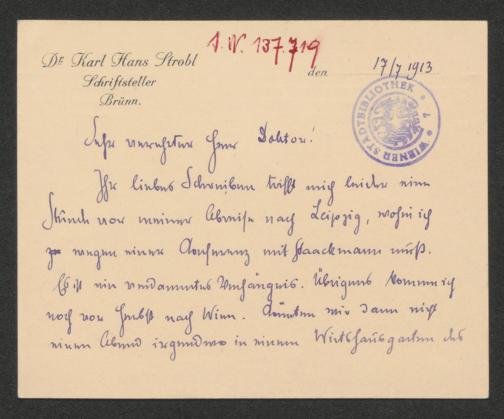 J. N. 137.719
Dr Karl Hans Strobl
Schriftsteller
Brünn.
den 17/7 1913
WIENER STADTBIBLIOTHEK
Sehr verehrter Herr Doktor!
Ihr liebes Schreiben trifft mich leider eine
Stunde vor meiner Abreise nach Leipzig, wohin ich
wegen einer Konferenz mit Staackmann muß.
Es ist ein verdammtes Verhängnis. Übrigens komme ich
noch vor Herbst nach Wien. Könnten wir dann nicht
einen Abend irgendwo in einem Wirtshausgarten des